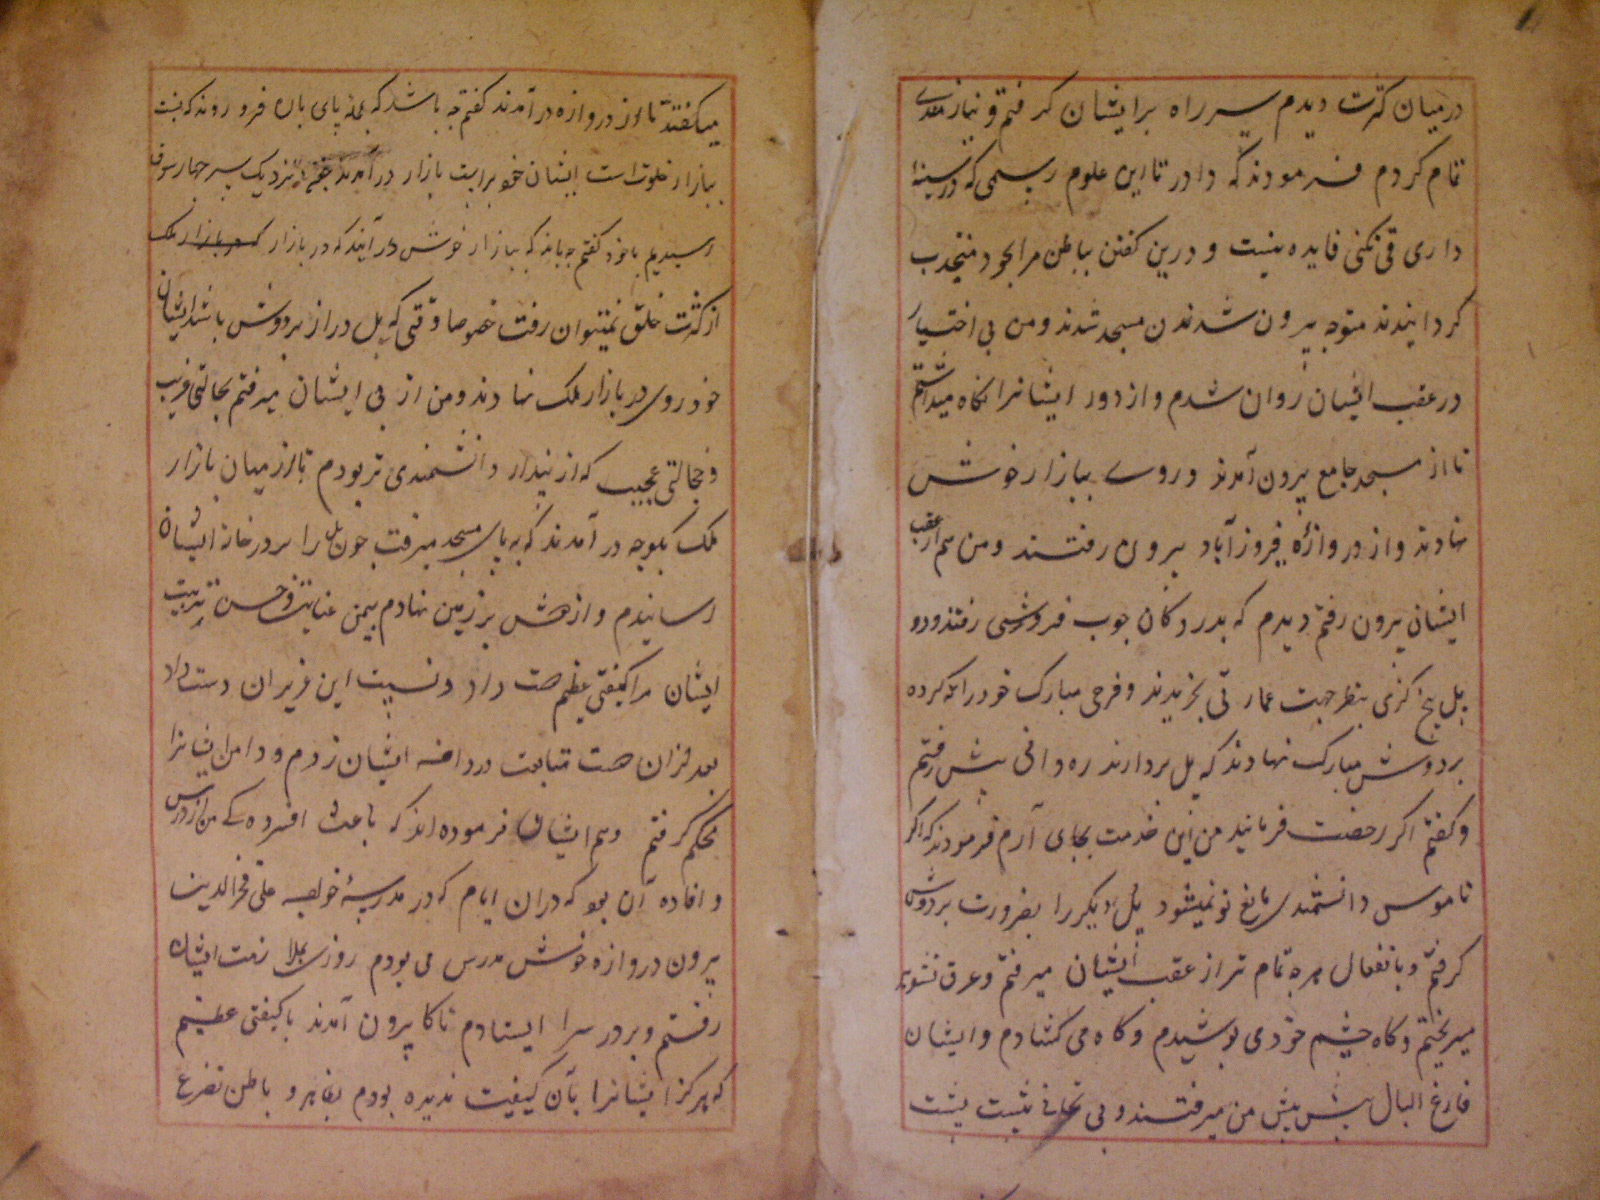 درمیان کثرت دیدم سر راه برایشان کرفتم و نیازمندی
تمام کردم فرمودند که دادر تا این علوم رسمی که در سینهٔ
داری قی نکنی فایده نیست و درین کفتن بباطن مرا بخود منجذب
کردانیدند متوجه بیرون شدند مسجد شدند و من بی اختیار
در عقب ایشان روان شدم و از دور ایشانرا نکاه میداشتم
تا از مسجد جامع بیرون آمدند و روی ببازار خوش
نهادند و از دروازهٔ فیروزآباد بیرون رفتند و من هم از عقب
ایشان بیرون رفتم دیدم که بدر دکان چوب فروشی رفتند و دو
پل پنج کزی بنظر جهت عمارتی بخریدند و فرجی مبارک خود را ته کرده
بر دوش مبارک نهادند که پل بردارند ره دانی پیش رفتم
و کفتم اکر رخصت فرمایند من این خدمت بجای آرم فرمودند که اکر
ناموس دانشمندی مانع تو نمیشود پل دیکر را بضرورت بر دوش
کرفتم و بانفعال هرچه تمام تر از عقب ایشان میرفتم و عرق تشویر
میریختم و کاه چشم خود می پوشیدم و کاه می کشادم و ایشان
فارغ البال پیش پیش من میرفتند و بی تحاشی پشت پشت
میکفتند تا از دروازه در آمدند کفتم چه باشد که بمله پای باره فرو روند که بنسبت
ببازار خلوتست ایشان خود براست بازار در آمدند نزدیک بسر چهارسوق
رسیدیم با خود کفتم چه باشد که ببازار خوش در آیند که در بازار ملک
از کثرت خلق نمیتوان رفت خصوصا وقتی که پل دراز بر دوش باشد ایشان
خود روی در بازار ملک نهادند و من از پی ایشان میرفتم بحالتی غریب
و خجالتی عجیب که از پندار دانشمندی تر بودم تا از میان بازار
ملک بکوچه در آمدند که به پای مسجد میرفت چون پل را بدر خانه ایشان
رسانیدم و از دوش بر زمین نهادم بیمن عنایت و حسن تربیت
ایشان مرا کیفیتی عظیم دست داد و نسبت این عزیزان دست داد
بعد از آن دست متابعت در دامن ایشان زدم و دامن ایشانرا
محکم کرفتم وهم ایشان فرموده اند که باعث افسرده کی من از درس
و افاده آن بود که دران ایام که در مدرسهٔ خواجه علی فخرالدین
بیرون دروازه خوش مدرس می بودم روزی بملازمت ایشان
رفتم و بر در سرا ایستادم تا کاه بیرون آمدند با کیفیتی عظیم
که هرکز ایشانرا بآن کیفیت ندیده بودم بظاهر و باطن تضرع